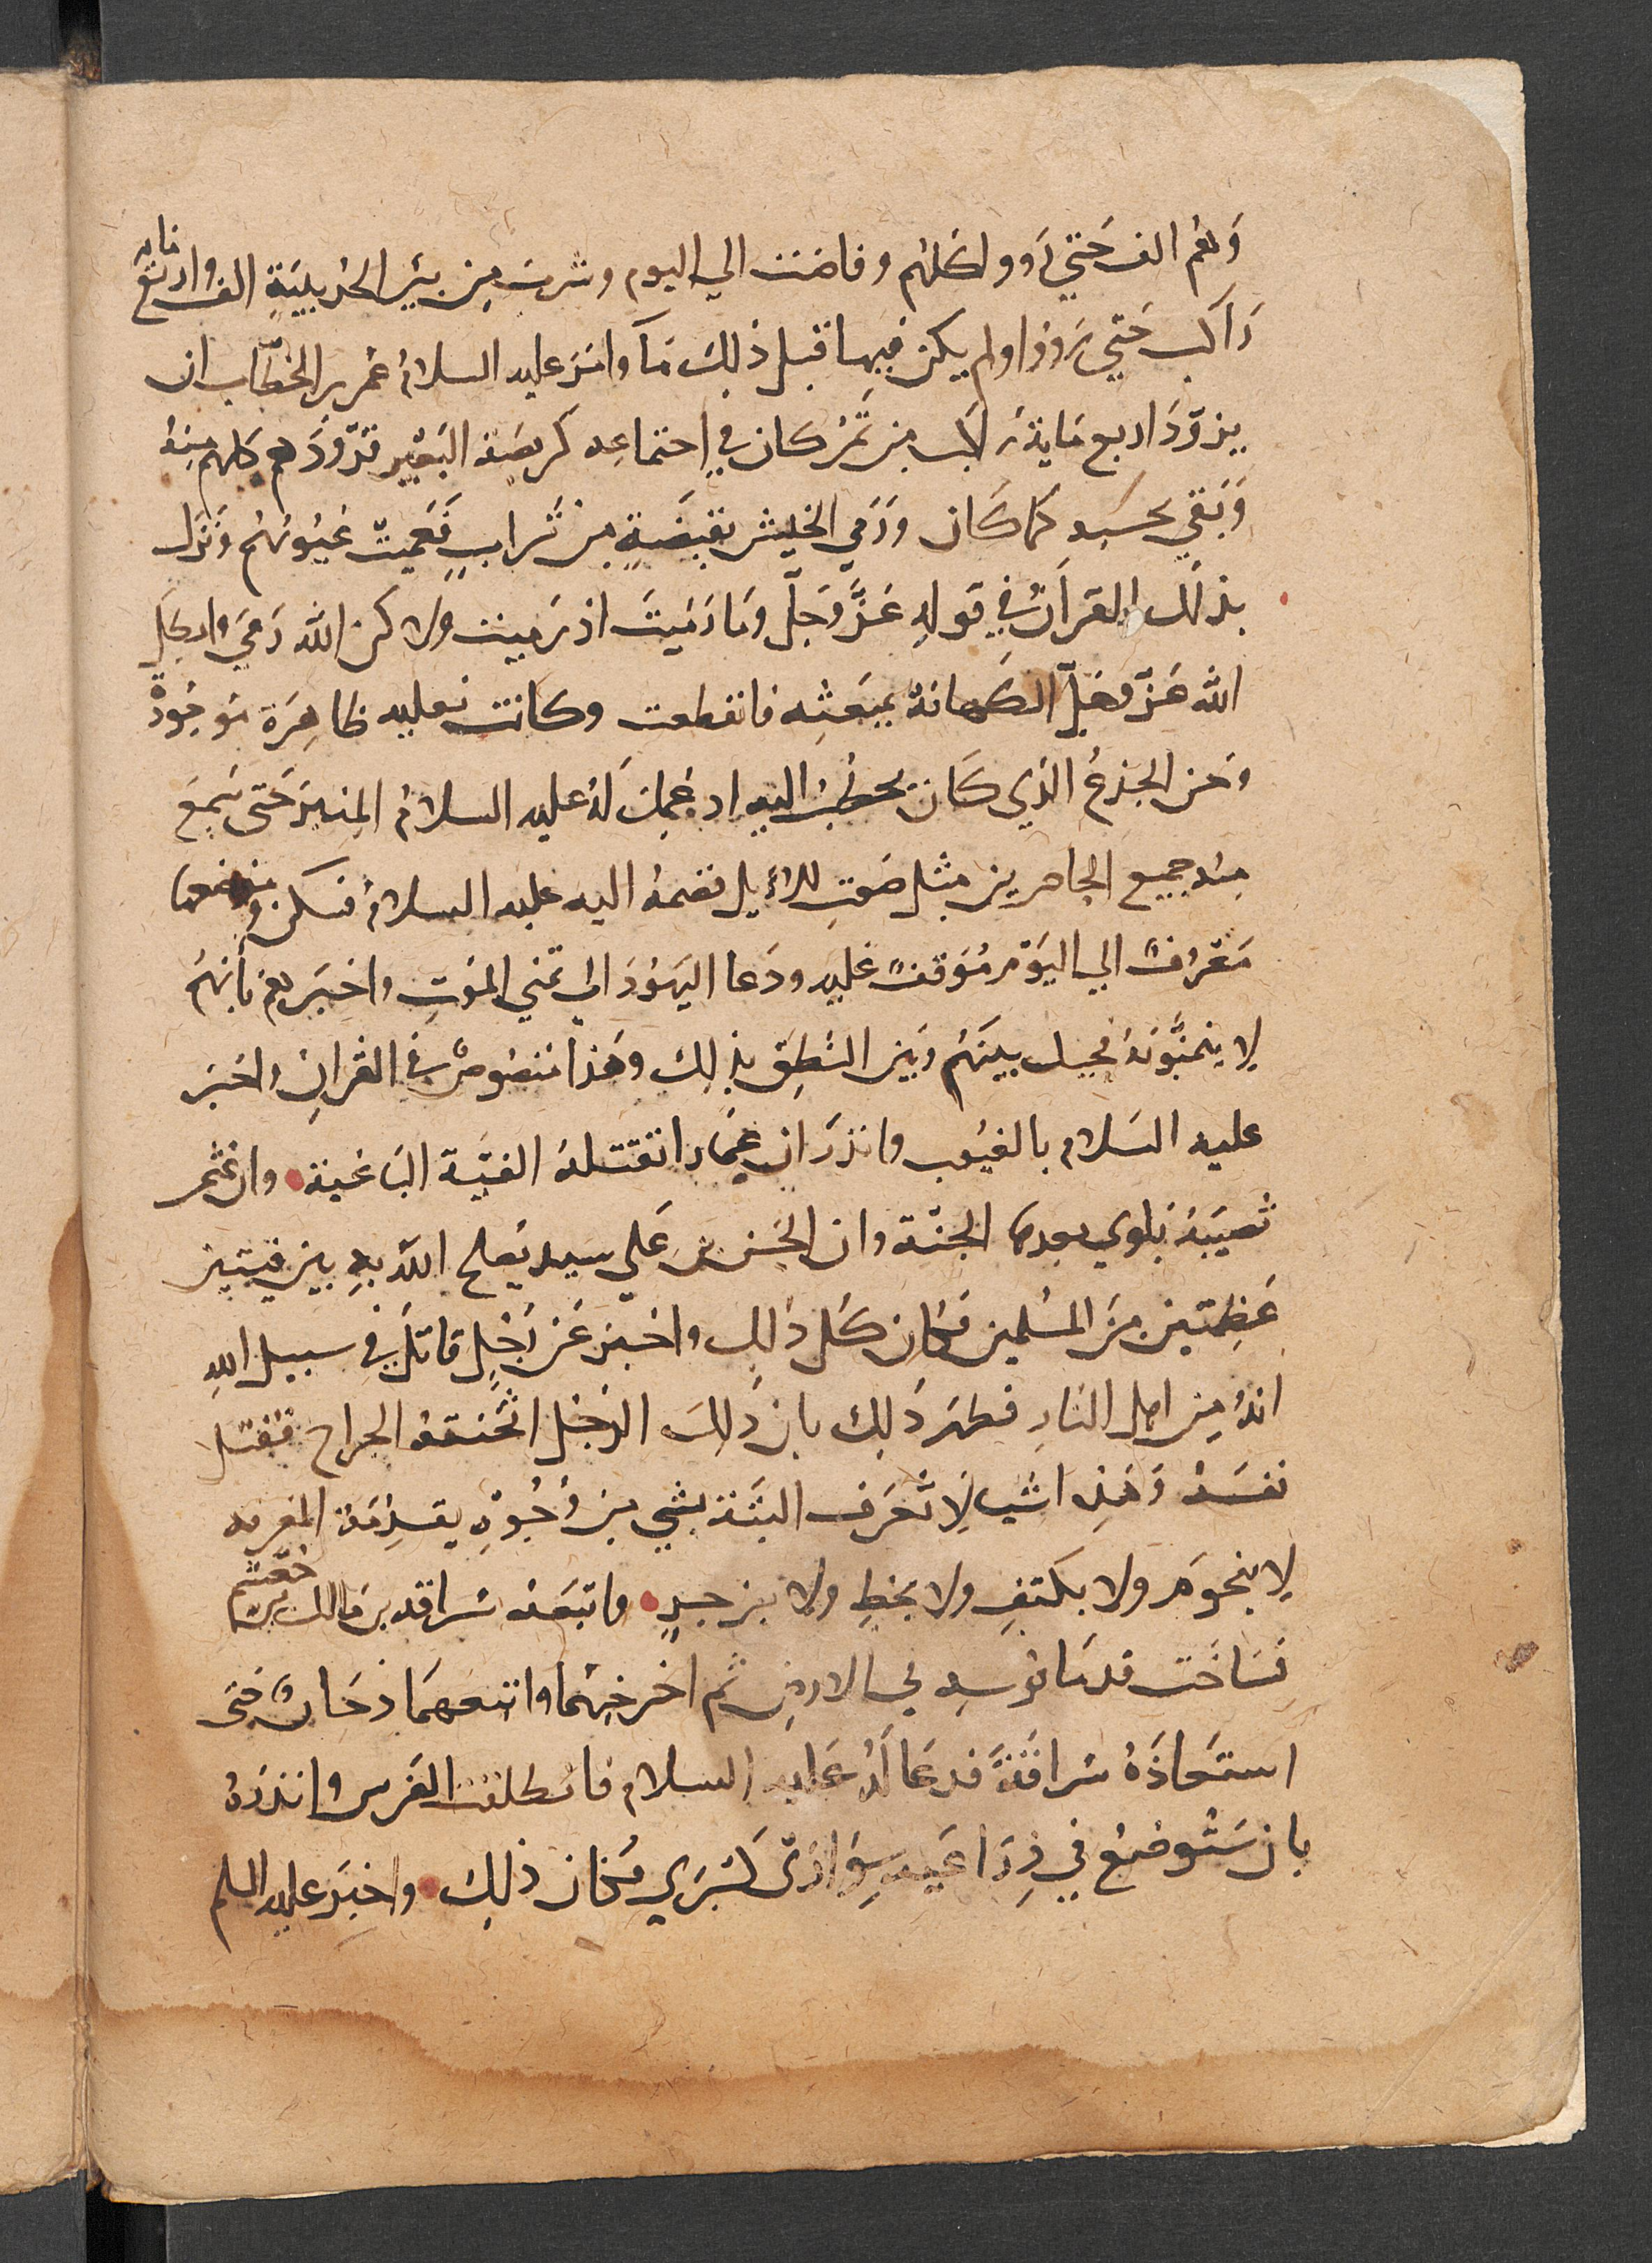 وَهُم الف حَتي رَووا كلهُم وفاضت الي اليوم وشرب مِن بير الحُديبيَةِ الف واربَع ماية
رَاكب حَتي رَووا ولم يكن فيها قبل ذلِك مَآ وامَرَ عليه السلامُ عُمر بن الخطَّاب ان
يزوّدَ اربع مَاية رَاكب مِن تَمْر كان في اجتماعِه كربضة البَعير فزوّدَهم كلهم مِنهُ
وَبَقي بحسَبِه كمَا كَان وَرَمي الجيش بقبضَةٍ مِن تُرابٍ فَعَميتْ عُيُونهُم وَنزَل
بذلك القرآنُ في قولِهِ عَزَّ وَجَلَّ ومَا رَميْتَ اذ رَميت ولاكن اللّه رَمَي وابطَل
اللّه عَزّ وَجَلّ الكهَانةُ بمبعَثِه فانقطعت وكانت فعليه ظاهِرَة مَوجُودةً
وحَن الجذعُ الذِي كَان يخطُبُ اليه اذ عُمِلَ لَهُ عليه السلامُ المِنبَر حَتى سَمِعَ
مِنهُ جميع الحاضرين مِثل صَوتِ الابل فضمهُ اليه عليه السلامُ فسكن وموضعها
مَعْرُوفٌ الي اليَوْم مُوَقفٌ عَليه ودَعا اليَهُودَ الي تمني المَوتِ واخبَرَهُم بأنهُم
لا يتمنَّونَهُ فحيل بينَهُم وَبين النُطقِ بذلِك وهَذا مَنصُوصٌ في القُرانِ واخبَر
عليه السَلام بالغيُوب وانذرَ ان عَمارا تقتلهُ الفيَة البَاغية وان عُثمن
تُصيبَهُ بَلوي بعدهَا الجنَّة وان الحَسَن بن عَلي سيد يُصلح اللّه بهِ بين فيتين
عَظِمتين مِنَ المسُلمين فَكان كَل ذلِك واخبَر عَن رَجُلٍ قاتل في سبيل اللهِ
انهُ مِن اهل النارِ فظهَر ذَلِك بان ذَلِكَ الرَجُل اثخَنته الجراح فقتل
نفسَهُ وَهَذِه اشيا لا تُعرَف البتَة بشي مِن وُجُوهِ يقدِمَةِ المعرفه
لا بنجُومٍ ولا بكتفٍ ولا بخطٍ ولا بزجرٍ واتبَعَهُ سُراقة بن مالك بن جُعْشُم
فسَاخَت قدمَا فرسِه في الارضِ ثم اخرَجهُما واتبعهمَا دُخَانٌ حَتى
استَعاذهُ سُراقَةَ فدعَا لَهُ عَليه السلام فانطلقت الفَرس وانذرَهُ
بان سَتُوضعُ في ذِرَاعَيه سِوَارَيْ كسْرَي فَكان ذلِك واخبَر عليه السلم